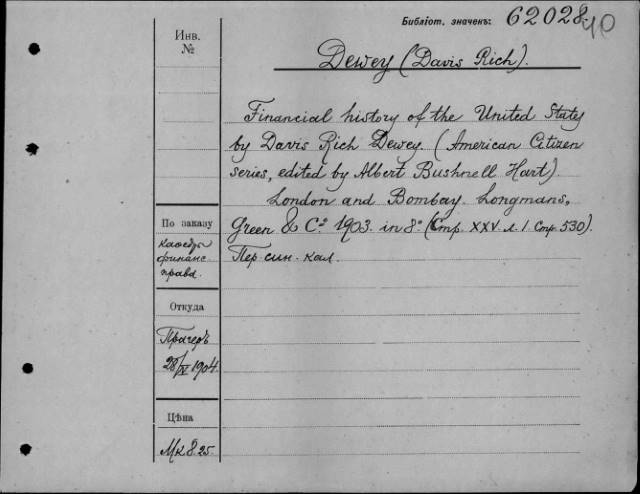 Библіот. значекъ: 62028.
40
Инв.
№
Dewey (Davis Rich).
Financial history of the United States
by Davis Rich Dewey. (American Citizen
series, edited by Albert Bushnell Hart).
London and Bombay. Longmans,
Green & Cº 1903. in 8º (Стр. XXV л. 1 Стр. 530).
Пер. син. кал.
По заказу
кафедры
финанс.
права.
Откуда
Прагеръ
28/IV 1904.
Цѣна
Мк 8.25.